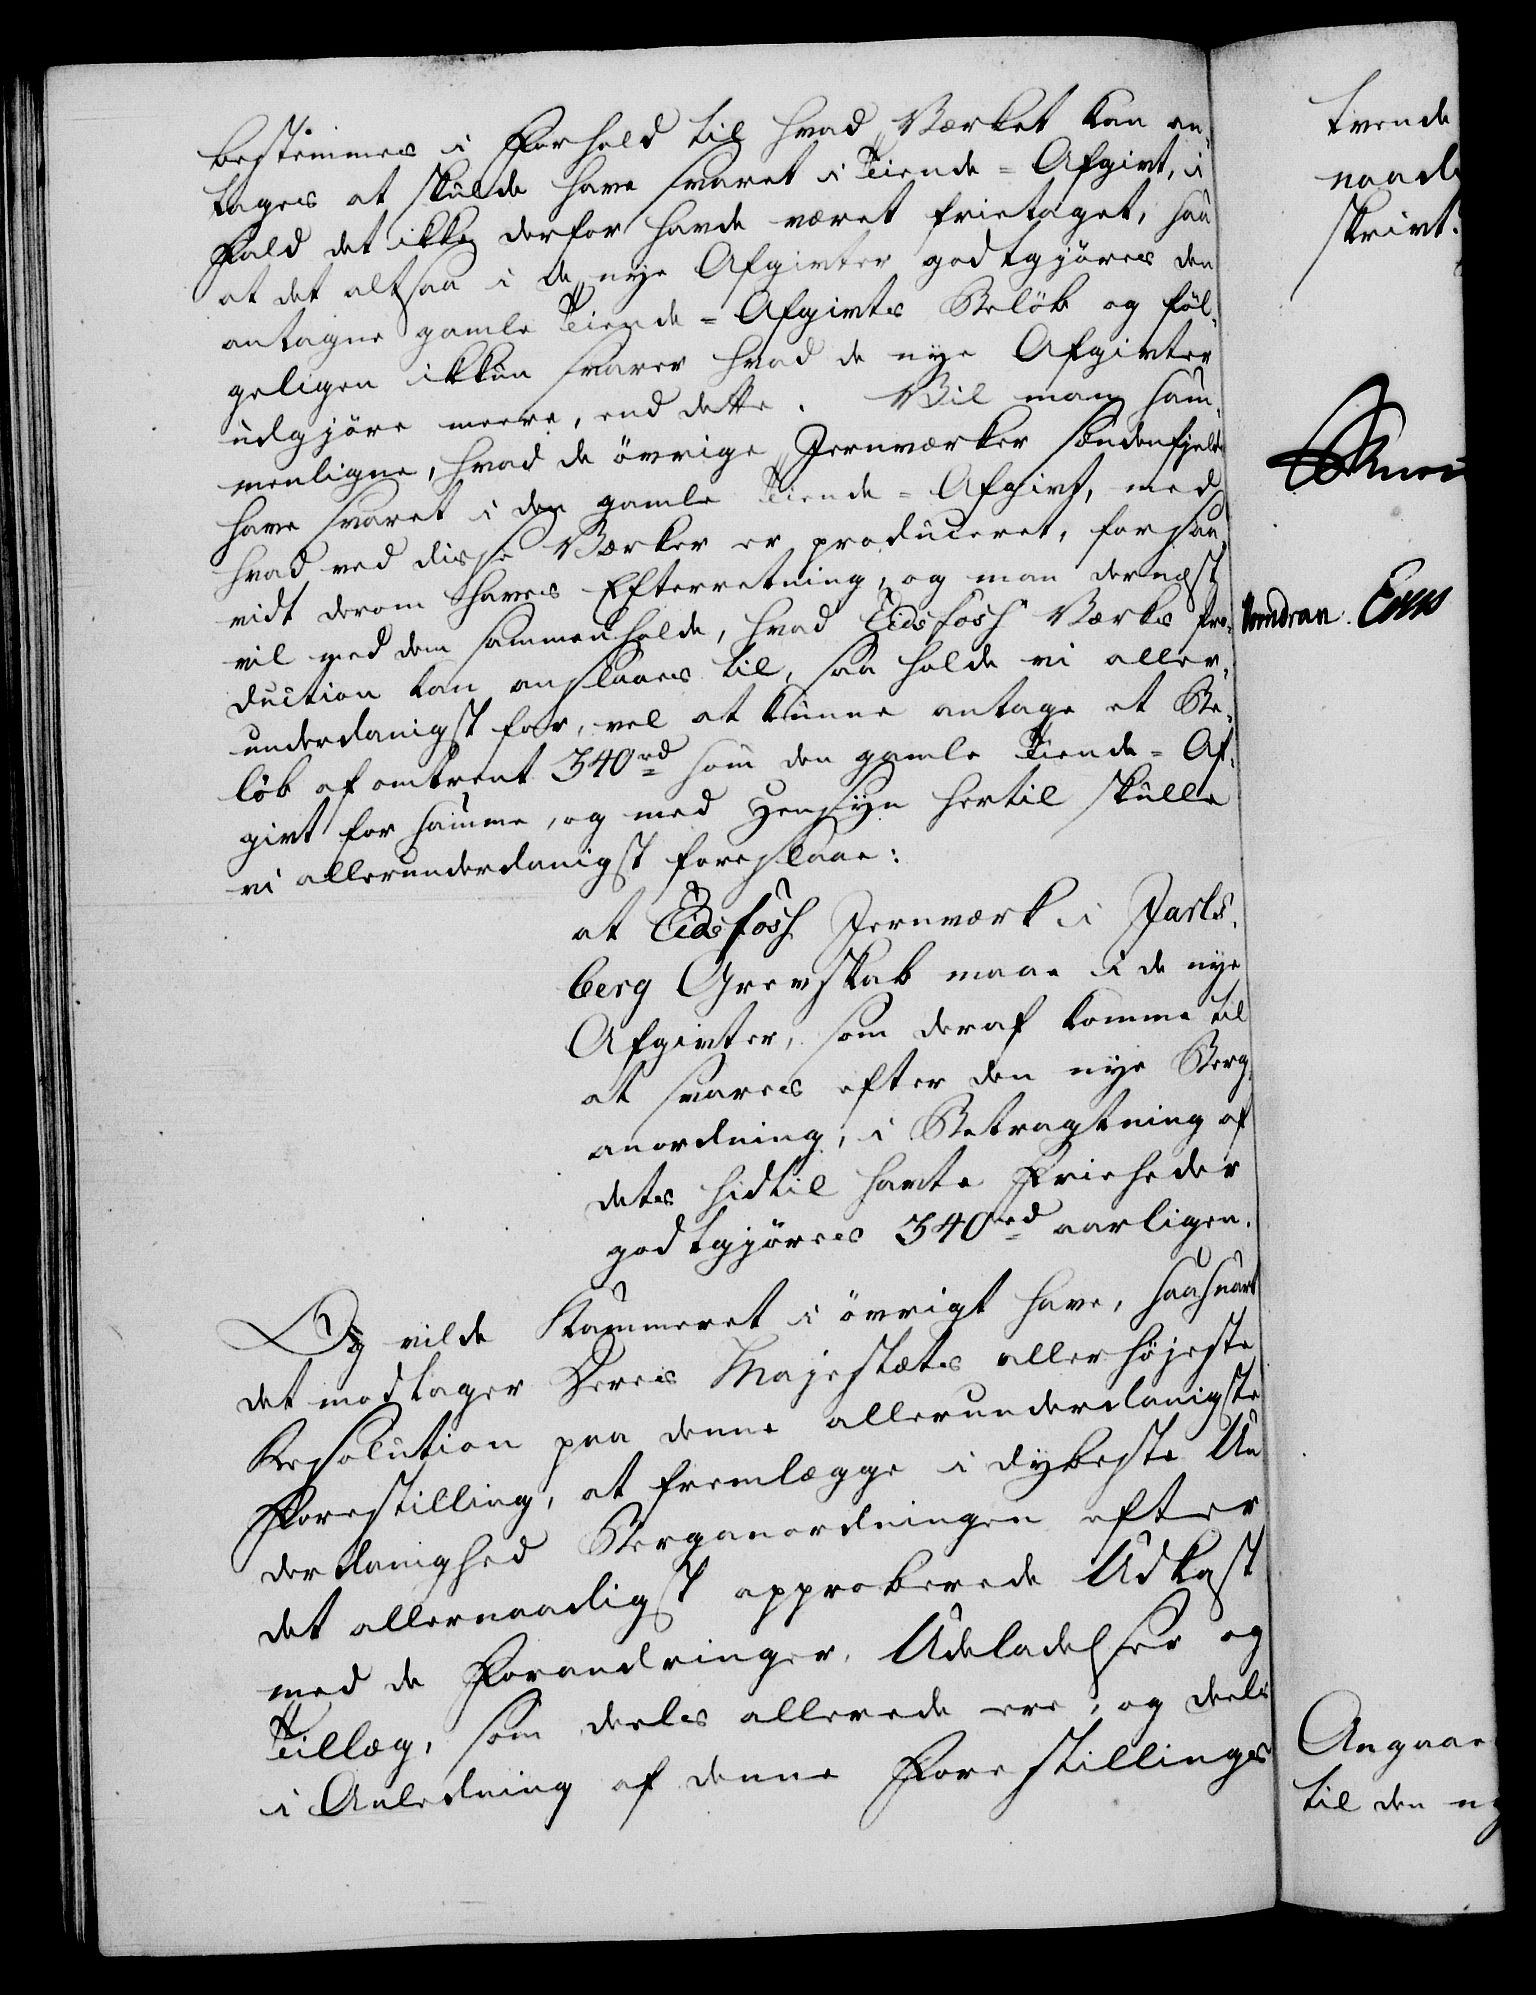 bestemmes i Forhold til hvad Værket kan an-
tages at skulde have svaret i Tiende-Afgivt, i
Fald det ikke derfor havde været frietaget, saa
at det altsaa i de nye Afgivter godtgjöres den
antagne gamle Tiende-Afgivts Belöb og föl-
geligen ikkun svarer hvad de nye Afgivter
udgjöre meere, end dette. Vil man sam-
menligne, hvad de övrige Jernværker söndenfjelds
have svaret i den gamle Tiende-Afgivt, med
hvad ved disse Værker er produceret, forsaa-
vidt derom haves Efterretning, og man dernæst
vil med dem sammenholde, hvad Eidsfoss Værks Pro-
duction kan anslaaes til, saa holde vi aller-
underdanigst for, vel at kunne antage et Be-
löb af omtrent 340 rd som den gamle Tiende-Af-
givt for samme, og med Hensyn hertil skulle
vi allerunderdanigst foreslaae:
at Eidsfoss Jernværk i Jarls-
berg Grevskab maae i de nye
Afgivter, som deraf komme til
at svares efter den nye Berg-
anordning, i Betragtning af
dets hidtil havte Frieheder
godtgjöres 340 rd aarligen.
Og vilde Kammeret i övrigt have, saasnart
det modtager Deres Majestæts allerhöjeste
Resolution paa denne allerunderdanigste
Forestilling, at fremlægge i dybeste Un-
derdanighed Berganordningen efter
det allernaadigst approberede Udkast
med de Forandringer, Udeladelser og
Tillæg, som deels allerede ere, og deels
i Anledning af denne Forestillings
trende
naad
skrivt.
Vormdran. Ers
Angaae
til den ny